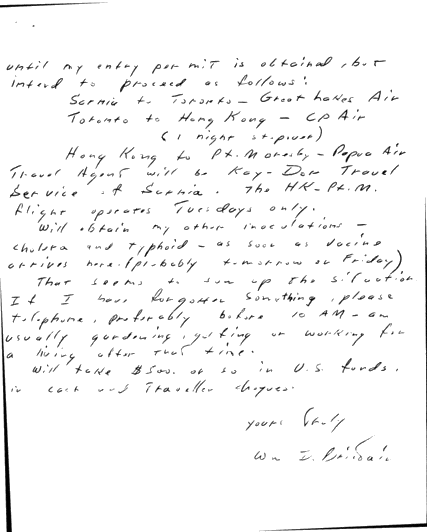 until my entry permit is obtained, but
intend to proceed as follows:
Sarnia to Toronto - Great Lakes Air
Toronto to Hong Kong - CP Air
(1 night stopover)
Hong Kong to Pt. Moresby - Papua Air
Travel Agent will be Kay-Dor Travel
Service of Sarnia. The HK-Pt.M.
flight operates Tuesdays only.
Will obtain my other inoculations -
cholera and typhoid - as soon as vacine
arrives here. (probably tomorrow or Friday)
That seems to sum up the situation.
If I have forgotten something, please
telephone, preferably before 10 AM - am
usually gardening, golfing or working for
a living after that time.
Will take $500. or so in U.S. funds,
in cash and Traveller cheques.
yours truly
Wm